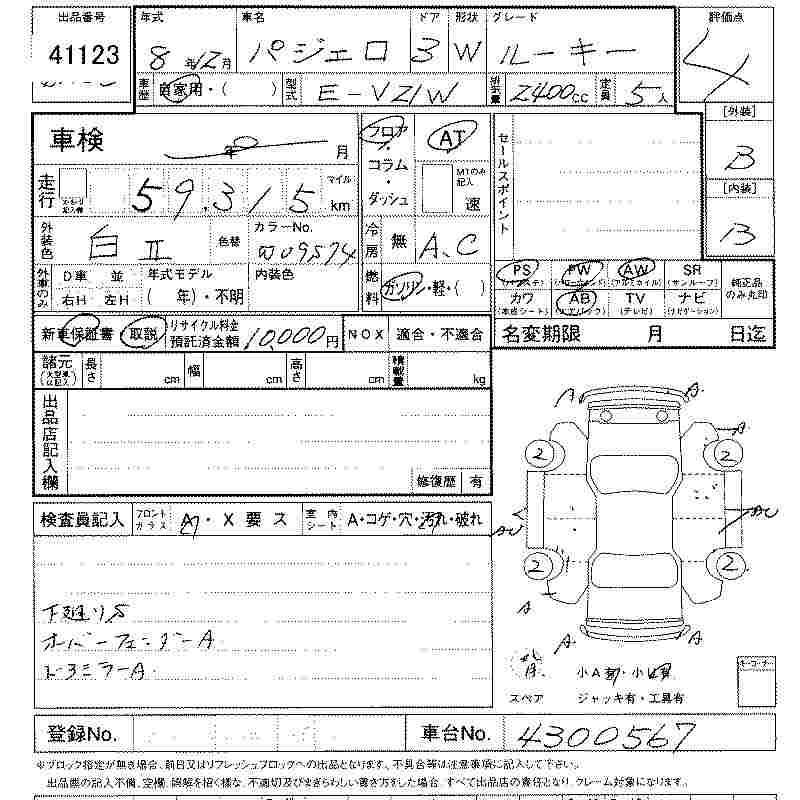 出品番号 年式 車名 ドア 形状 グレード 評価点
41123 8年12月 パジェロ 3 W ルーキー 4
車歴 自家用・( ) 型式 E-V21W 排気量 2400cc 定員 5人
[外装]
B
[内装]
B
車検 年 月
フロア・コラム・ダッシュ AT MTのみ記入 速
セールスポイント
走行 59,315 マイル km
外装色 白Ⅱ 色替 カラーNo. 内装色
冷房 無 A.C
外車のみ D車 並 右H 左H 年式モデル ( 年)・不明
燃料 ガソリン・軽・( )
PS PW AW SR (サンルーフ)
カワ (本皮シート) AB (エアバック) TV (テレビ) ナビ (ナビゲーション)
純正品のみ丸印
新車保証書・取説 リサイクル料金預託済金額 10,000円 NOX 適合・不適合
名変期限 月 日迄
諸元 長さ cm 幅 cm 高さ cm 積載量 kg
出品店記入欄
修復歴 有
検査員記入 フロントガラス A・X要ス 室内シート A・コゲ・穴・汚れ・破れ
A A
A
2 2
AU
2 2
A
A A
下廻りS
オーバーフェンダーA
ドアミラーA
スペア ジャッキ有・工具有
キーコーナー
登録No. 車台No. 4300567
※ブロック指定が無き場合、前日又はリフレッシュブロックへの出品となります。不具合等は注意事項に記入して下さい。
出品票の記入不備、空欄、誤解を招く様な、不適切及びまぎらわしい書き方をした場合、すべて出品店の責任となり、クレーム対象になります。